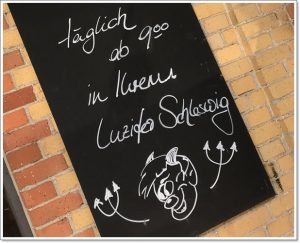 täglich
ab 9⁰⁰
in Ihrem
Luzifer Schleswig